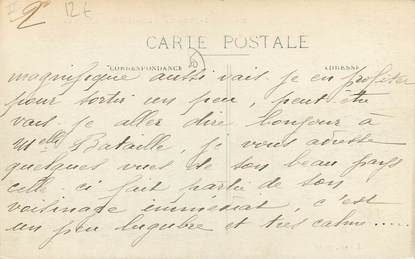 2 12€
CARTE POSTALE
CORRESPONDANCE ADRESSE
magnifique aussi vais-je en profiter
pour sortir un peu, peut être
vais-je aller dire bonjour à
Melle Bataille, je vous adresse
quelques vues de son beau pays
celle-ci fait partie de son
voisinage immédiat, c'est
un peu lugubre et très calme.....